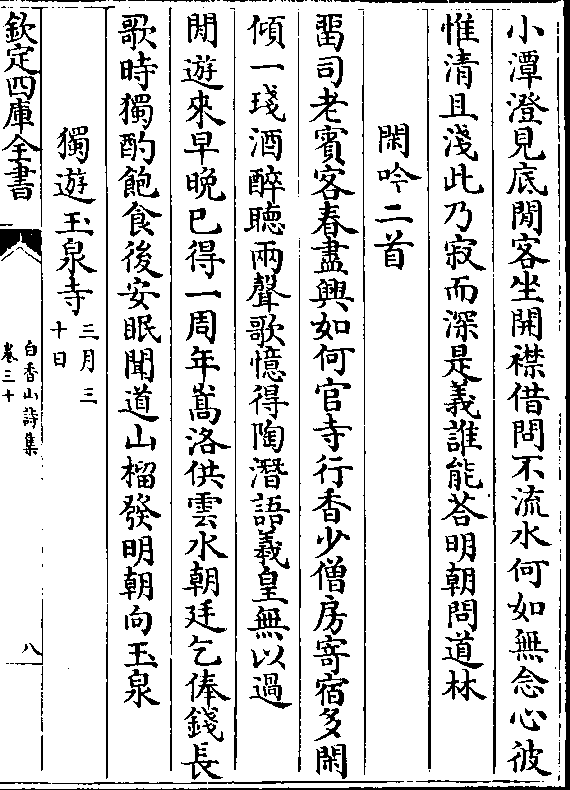 小潭澄見底閒客坐開襟借問不流水何如無念心彼
惟清且淺此乃寂而深是義誰能荅明朝問道林
閑吟二首
留司老賓客春盡興如何官寺行香少僧房寄宿多閑
傾一琖酒醉聽兩聲歌憶得陶潛語羲皇無以過
閒遊來早晚已得一周年嵩洛供雲水朝廷乞俸錢長
歌時獨酌飽食後安眠聞道山榴發明朝向玉泉
獨遊玉泉寺三月三
十日
欽定四庫全書
白香山詩集
卷三十
八